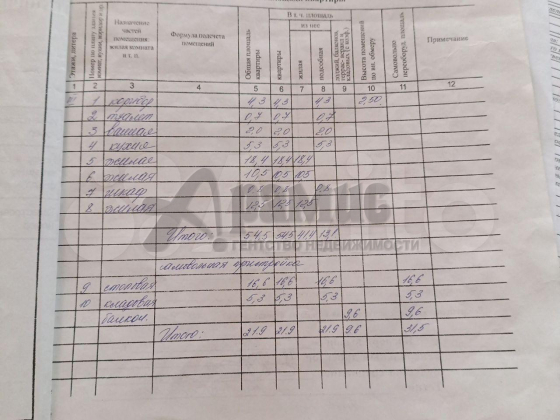 В т. ч. площадь
из нее
Этажи, литера
Номер по плану
Назначение частей помещения: жилая комната и т. п.
Формула подсчета помещений
Общая площадь квартиры
квартиры
жилая
подсобная
Высота помещений по вн. обмеру
Самовольно переоборуд. площадь
Примечание
1 2 3 4 5 6 7 8 9 10 11 12
1 коридор 4,3 4,3 4,3 2,50
2 туалет 0,7 0,7 0,7
3 ванная 2,0 2,0 2,0
4 кухня 5,3 5,3 5,3
5 жилая 18,4 18,4 18,4
6 жилая 10,5 10,5 10,5
7 шкаф
8 жилая 12,5 12,5 12,5
Арамис
АГЕНТСТВО НЕДВИЖИМОСТИ
Итого: 54,5 54,5 41,4 13,1
самовольная пристройка
9 столовая 16,6 16,6 16,6 16,6
10 кладовая 5,3 5,3 5,3 5,3
балкон 9,6 9,6
Итого: 21,9 21,9 21,9 9,6 31,5